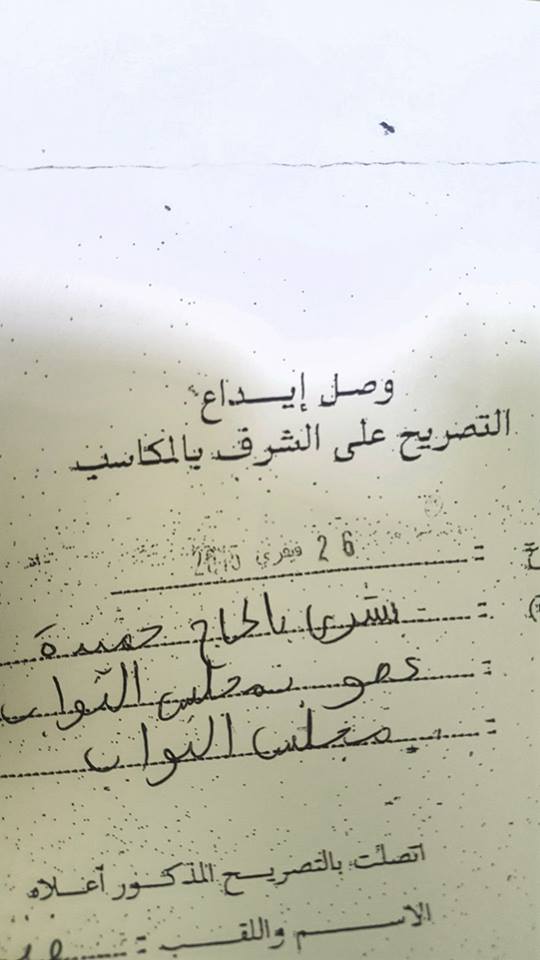 وصل إيداع
التصريح على الشرف بالمكاسب
26 فيفري 2015 :
بشرى بالحاج حميدة :
عضو بمجلس النواب :
مجلس النواب :
اتصلت بالتصريح المذكور أعلاه
الاسم واللقب :